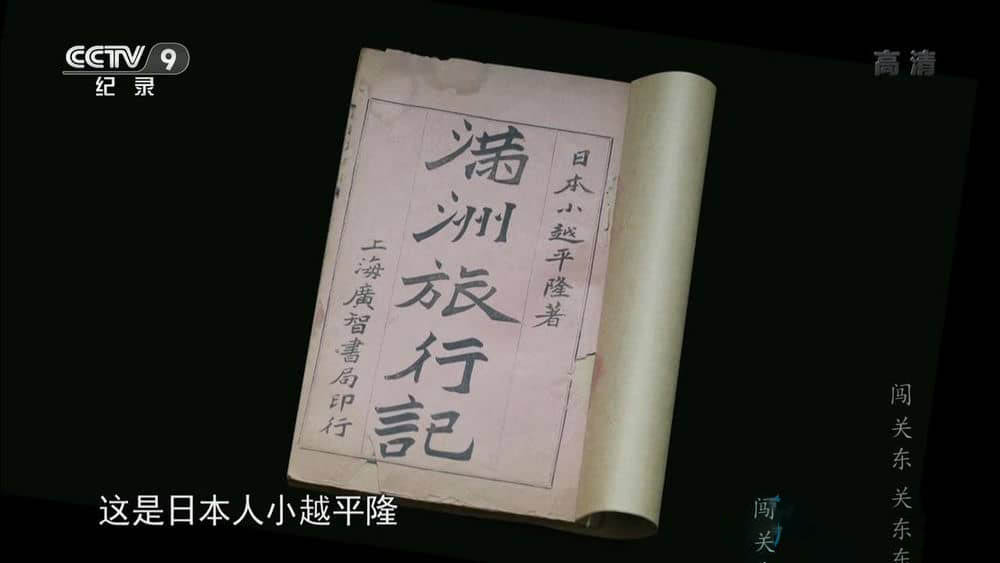 CCTV 9
纪录
高清
日本小越平隆著
满洲旅行記
上海廣智書局印行
这是日本人小越平隆
闯关东 关东东
闯关